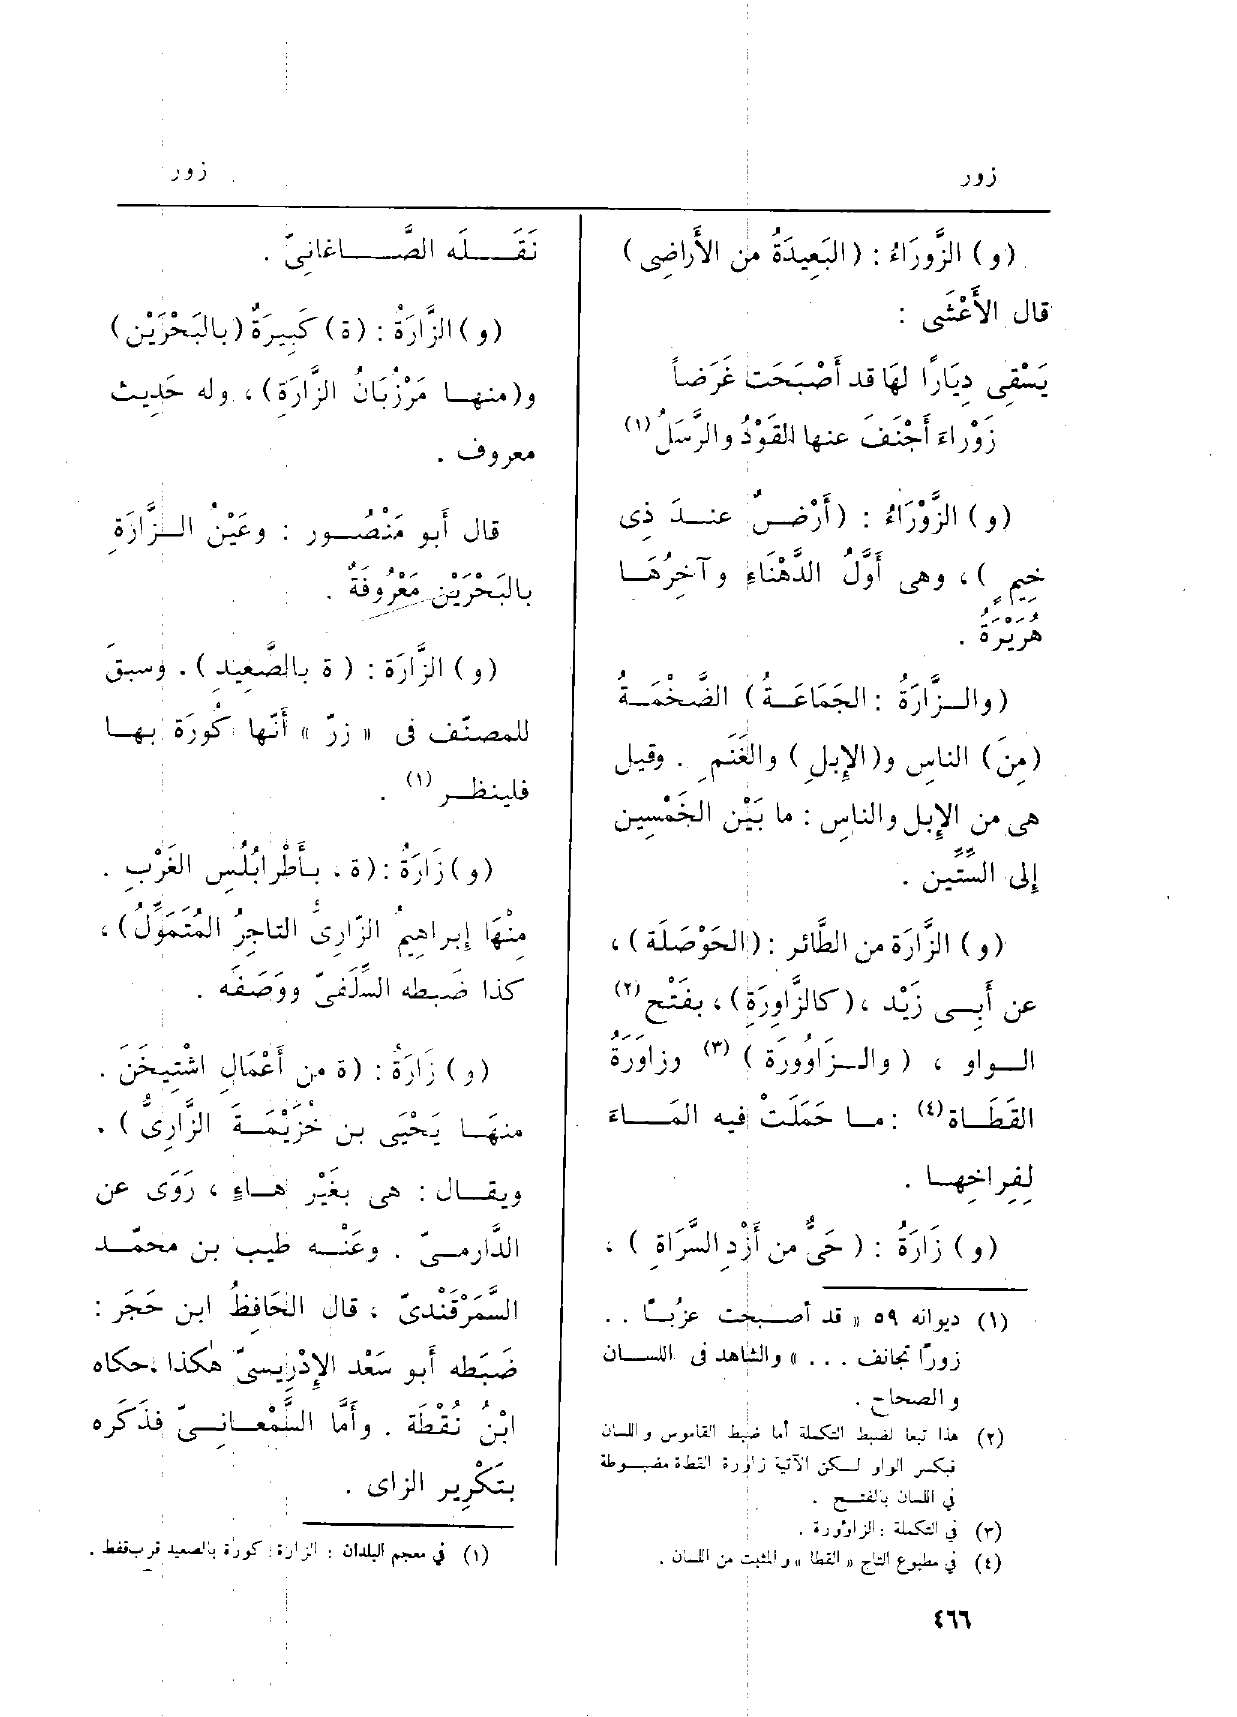 زور
زور
(و) الزَّورَاءُ : (البَعِيدَةُ من الأَراضِى)
قال الأَعْشَى :
يَسْقِى دِيَارًا لهَا قد أَصْبَحَت غَرَضاً
زَوْراءَ أَجْنَفَ عنها القَوْدُ والرَّسَلُ (١)
(و) الزَّوْرَاءُ : (أَرْضٌ عنـدَ ذِى
خِيمٍ ) ، وهى أَوَّلُ الدَّهْنَاءِ وآخِرُهَـا
هُرَيْرَةُ .
(والـزَّارَةُ : الجَمَاعَـةُ) الضَّخْمَـةُ
(مِنَ) الناسِ و(الإِبلِ) والغَنَمِ . وقيل
هى من الإِبل والناسِ : ما بَيْن الخَمْسِين
إلى السّتّين .
(و) الزَّارَة من الطَّائر : (الحَوْصَلَة) ،
عن أَبِـى زَيْد ، (كالزَّاوِرَةِ) ، بفَتْح (٢)
الـواو ، ( والـزَاوُورَة ) (٣) وزاوَرَةُ
القَطَـاة (٤) : مـا حَمَلَتْ فيه المَـاءَ
لِفِراخِهـا .
(و) زَارَةُ : ( حَىٌّ من أَزْدِ السَّرَاةِ ) ،
(١) ديوانه ٥٩ « قد أصـبحت عزُبـًا . .
زورًا تجانف . . . » والشاهد فى اللسـان
والصحاح .
(٢) هذا تبعا لضبط التكملة أما ضبط القاموس واللسان
فبكسر الواو لـكن الآتية زاورة القطاة مضبـوطة
في اللسان بالفتـح .
(٣) في التكملة : الزاؤورة .
(٤) في مطبوع التاج « القطا » والمثبت من اللسان .
نَقَـلَه الصَّـاغانِىّ .
(و) الزَّارَةُ : (ة) كَبِيرَةٌ (بالبَحْرَيْن)
و(منهـا مَرْزُبَانُ الزَّارَةِ) ، وله حَدِيث
معروف .
قال أَبو مَنْصُـور : وعَيْنُ الـزَّارَةِ
بالبَحْرَيْن مَعْرُوفَةٌ .
(و) الزَّارَة : ( ة بالصَّعِيد ) . وسبقَ
للمصنّف فى « زرّ » أَنّها كُورَة بهـا
فلينظـر (١) .
(و) زَارَةُ : (ة ، بـأَطْرابُلُس الغَرْبِ .
مِنْهَا إبراهِيمُ الزّارِىُّ التاجِرُ المُتَمَوِّلُ) ،
كذا ضَبطه السِّلَفىّ ووَصَفَه .
(و) زَارَةُ : (ة من أَعْمَالِ اشْتِيخَنَ .
منهَـا يَحْيَى بن خُزَيْمَـةَ الزَّارِىُّ ) .
ويقـال : هى بغَيْر هـاءٍ ، رَوَى عن
الدَّارمـىّ . وعَنْـه طيب بن محمّـد
السَّمَرْقَنْدِىّ ، قال الحَافِظُ ابن حَجَر :
ضَبَطه أَبو سَعْد الإِدْرِيسىّ هٰكذا ، حكاه
ابْنُ نُقْطَة . وأَمَّا السَّمْعـانِـىّ فذَكَره
بتَكْرِير الزاى .
(١) في معجم البلدان : الزارة : كورة بالصعيد قرب قفط .
٤٦٦